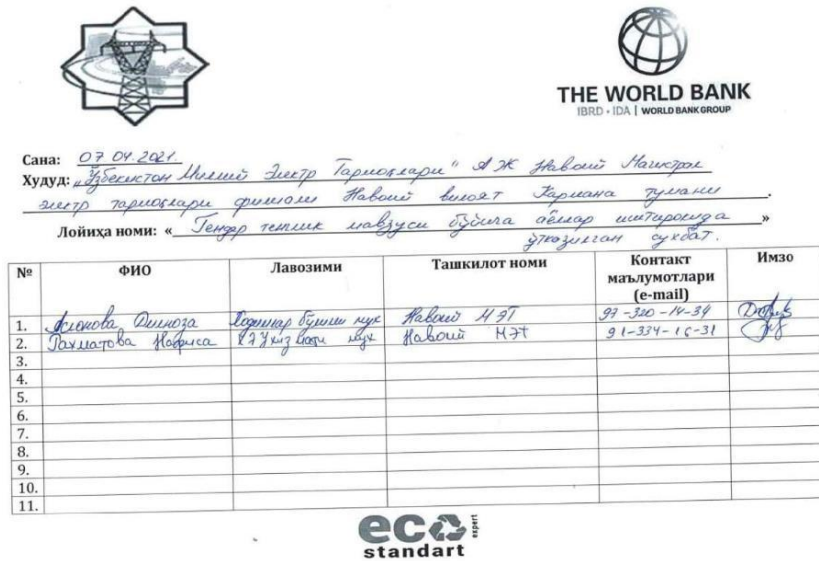 THE WORLD BANK
IBRD • IDA | WORLD BANK GROUP
Сана: 07.04.2021.
Худуд: „Ўзбекистон Миллий Электр Тармоқлари" АЖ Навоий Магистрал
электр тармоқлари филиали Навоий вилоят Кармана тумани.
Лойиҳа номи: « Гендер тенглик мавзуси бўйича аёллар иштирокида »
ўтказилган суҳбат.
№ ФИО Лавозими Ташкилот номи Контакт маълумотлари (e-mail) Имзо
1. Аслонова Дилноза Ходимлар бўлими мух Навоий МЭТ 97-320-14-34
2. Рахматова Нафиса мух Навоий МЭТ 91-334-16-31
3.
4.
5.
6.
7.
8.
9.
10.
11.
eco
standart
expert